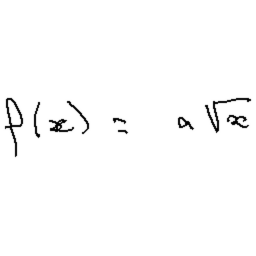 f(x) = a√x